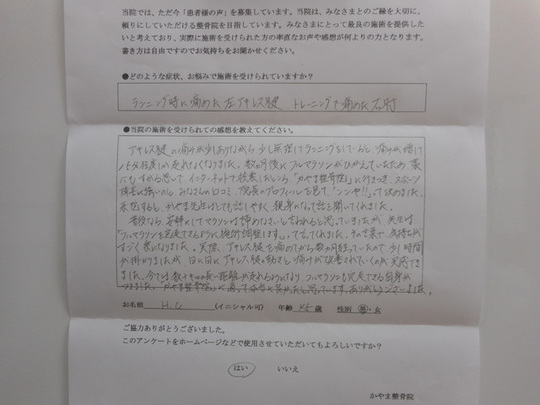 当院では、ただ今「患者様の声」を募集しています。当院は、みなさまとのご縁を大切に、
頼りにしていただける整骨院を目指しています。みなさまにとって最良の施術を提供した
いと考えており、実際に施術を受けられた方の率直なお声や感想が何よりの力となります。
書き方は自由ですのでお気持ちをお聞かせください。
●どのような症状、お悩みで施術を受けられていますか?
ランニング時に痛めた左アキレス腱 トレーニングで痛めた右肘
●当院の施術を受けられての感想を教えてください。
アキレス腱の痛みが少しありながら少し無理してランニングをしていると、痛みが増して
走れなくなりました。数ヶ月後にフルマラソンがひかえていたため
にもすがる思いで、インターネットで検索したところ「かやま整骨院」に行きつき、スポーツ
みなさんの口コミ、院長のプロフィールを見て
かやま先生はとても話しやすく、親身になって話を聞いてくれました。
マラソンは諦めなさいと言われると思っていましたが、先生は、
「フルマラソンを完走できるように施術調整します。」って言ってくれました。その言葉で、気持ちが
すごく楽になりました。実際、アキレス腱を痛めてから数ヶ月経っていたので、少し時間
が掛かりましたが、日に日にアキレス腱の動きと痛みが改善されていくのが実感でき
ました。今では数十キロの長い距離が走れるようになり、フルマラソンも完走できる自信が
つきました。かやま整骨院に通って本当に良かったと思っています。ありがとうございました。
お名前 H.U (イニシャル可) 年齢 歳 性別 男・女
ご協力ありがとうございました。
このアンケートをホームページなどで使用させていただいてもよろしいですか?
はい いいえ
かやま整骨院